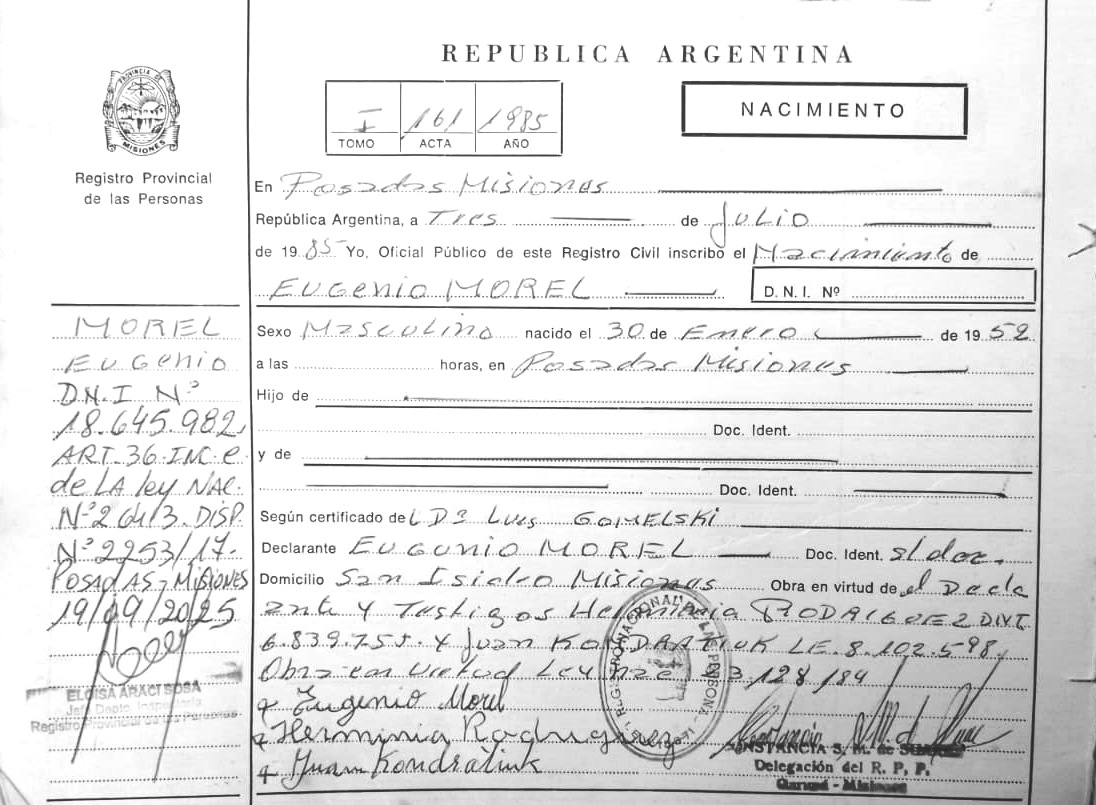 REPUBLICA ARGENTINA
PROVINCIA DE MISIONES
Registro Provincial
de las Personas
I 161 1985
TOMO ACTA AÑO
NACIMIENTO
En Posadas Misiones
República Argentina, a Tres de Julio
de 1985 Yo, Oficial Público de este Registro Civil inscribo el Nacimiento de
EUGENIO MOREL D. N. I. Nº
Sexo Masculino nacido el 30 de Enero de 1952
a las horas, en Posadas Misiones
Hijo de
Doc. Ident.
y de
Doc. Ident.
Según certificado del Dº Luis GOMELSKI
Declarante EUGENIO MOREL Doc. Ident. s/doc.
Domicilio San Isidro Misiones Obra en virtud de el Decla
ante y Testigos Herminia RODRIGUEZ D.N.I
6.839.755. y Juan KONDRATIUK L.E. 8.102.598,
Obra en Virtud Ley 23.128/84
Eugenio Morel
Herminia Rodriguez
Juan Kondratiuk
CONSTANCIA S. M. de
Delegación del R. P. P.
Garupá - Misiones
MOREL
EUGENIO
D.N.I Nº
18.645.982,
ART. 36. INC. e
de LA ley NAC.
Nº 26413. DISP.
Nº 2253/17.
POSADAS - MISIONES
19/09/2025
ELOISA ARACI SOSA
Jefa Depto. Inspectoría
Registro Provincial de las Personas